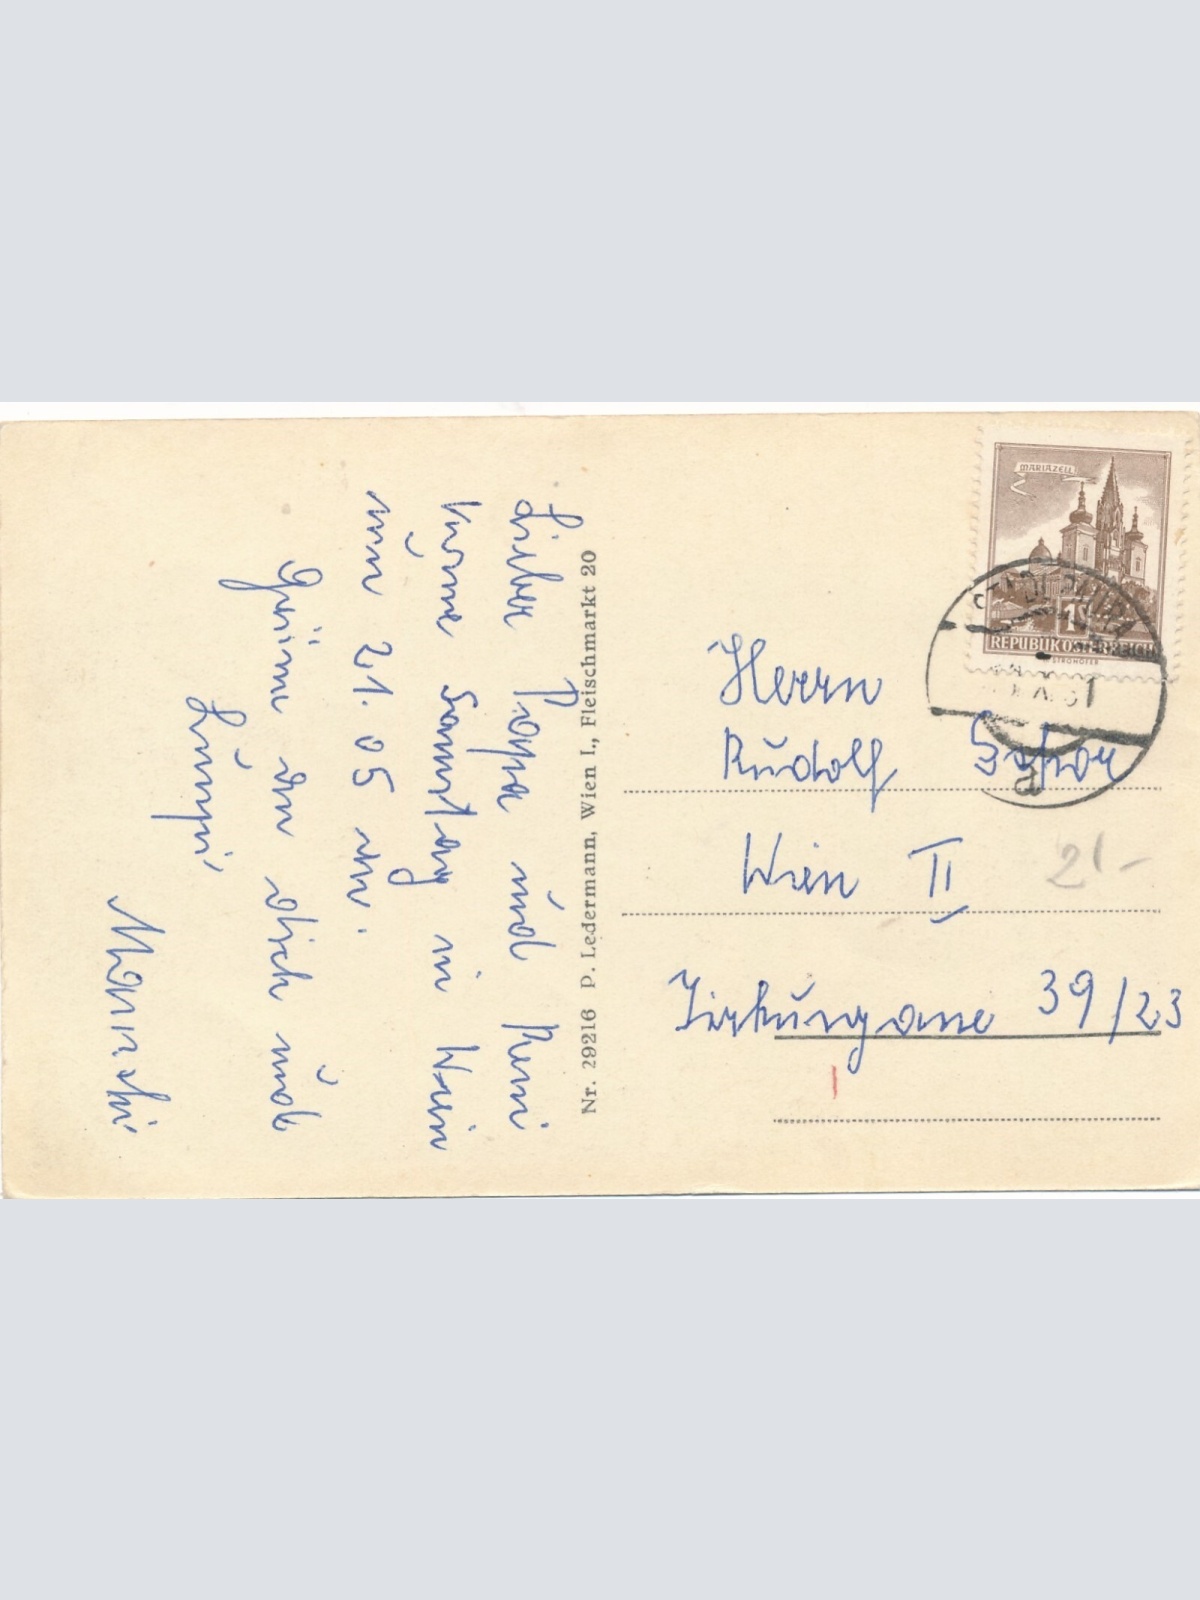 Lieber Papa und Reni
komme Samstag in Wien
um 21.05 an.
Grüsse an dich und
Mauski
Nr. 29216 P. Ledermann, Wien I., Fleischmarkt 20
MARIAZELL
1S
REPUBLIK OSTERREICH
STROHOFER
Herrn
Rudolf
Wien II
21-
Zirkusgasse 39/23